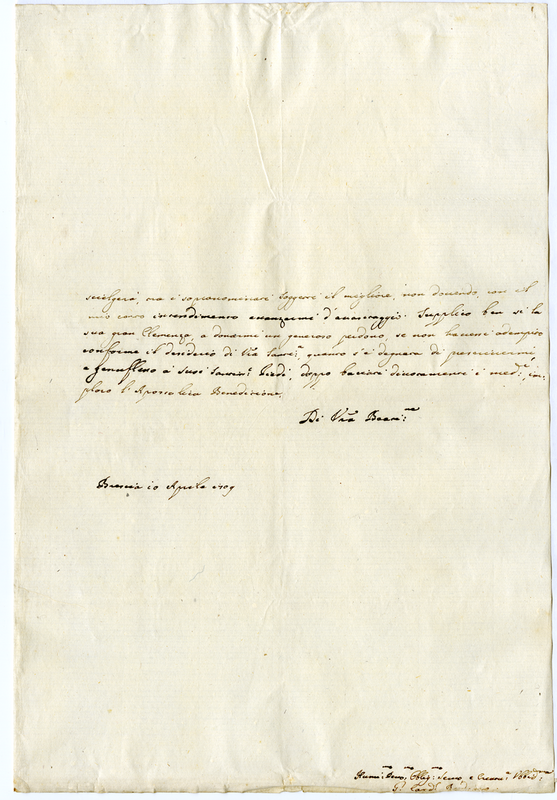 scielgerà, tra i sopranominati soggetti il migliore, non dovendo, con il
mio corto intendimento avanzarmi d'avvantaggio. Supplico ben sì la
sua gran Clemenza, a donarmi un generoso perdono, se non havessi adempito
conforme il desiderio di Vra Santità, quanto s'è degnata di prescrivermi,
e genuflesso a suoi Santissi: Piedi, doppo baciati divotamente i medmi, im-
ploro l'Apostolica Benedizione.
Di Vra Beatne:
Brescia 10 Aprile 1709
Humi: Devo: Oblig: Servo, e Creatra